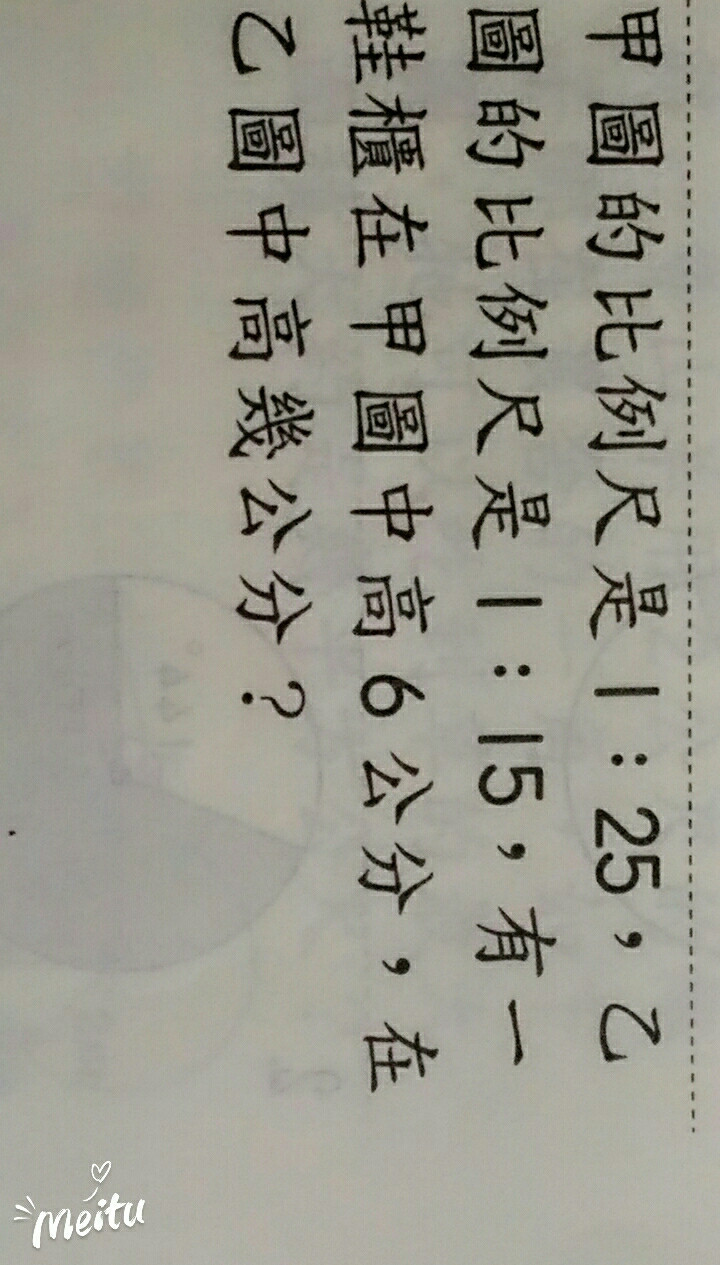 甲圖的比例尺是1:25，乙
圖的比例尺是1:15，有一
鞋櫃在甲圖中高6公分，在
乙圖中高幾公分？
meitu